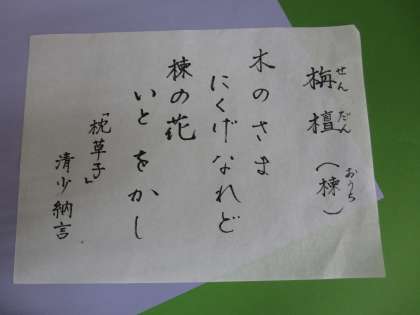 栴檀(楝)
せんだん おうち
木のさま
にくげなれど
楝の花
いとをかし
「枕草子」
清少納言